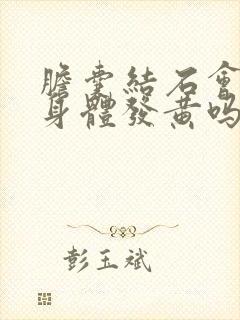 膽囊結石會
身體發黃嗎
彭玉斌